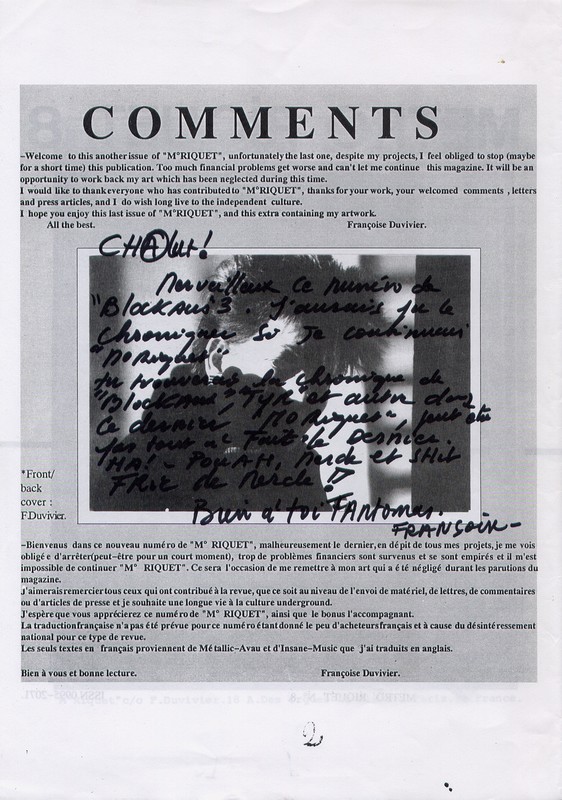 COMMENTS
-Welcome to this another issue of "M°RIQUET", unfortunately the last one, despite my projects, I feel obliged to stop (maybe
for a short time) this publication. Too much financial problems get worse and can't let me continue this magazine. It will be an
opportunity to work back my art which has been neglected during this time.
I would like to thank everyone who has contributed to "M°RIQUET", thanks for your work, your welcomed comments , letters
and press articles, and I do wish long live to the independent culture.
I hope you enjoy this last issue of "M°RIQUET", and this extra containing my artwork.
All the best. Françoise Duvivier.
CHAlut!
Merveilleux ce numéro de
"BlockAus 3. J'aurais pu le
chroniquer si je continuais
"MoRiquet"
tu trouveras la chronique de
"BlockAus", "TyR" et autre dans
ce dernier "MoRiquet", peut être
pas tout à Fait le DERNIER.
HA! - POUAH, Merde et SHit
FRic de Merde!
Bien à toi FAntomas.
FRANSOIR-
*Front/
back
cover :
F.Duvivier.
-Bienvenus dans ce nouveau numéro de "M° RIQUET", malheureusement le dernier, en dépit de tous mes projets, je me vois
obligé d'arrêter(peut-être pour un court moment), trop de problèmes financiers sont survenus et se sont empirés et il m'est
impossible de continuer "M° RIQUET". Ce sera l'occasion de me remettre à mon art qui a été négligé durant les parutions du
magazine.
J'aimerais remercier tous ceux qui ont contribué à la revue, que ce soit au niveau de l'envoi de matériel, de lettres, de commentaires
ou d'articles de presse et je souhaite une longue vie à la culture underground.
J'espère que vous apprécierez ce numéro de "M° RIQUET", ainsi que le bonus l'accompagnant.
La traduction française n'a pas été prévue pour ce numéro étant donné le peu d'acheteurs français et à cause du désintéressement
national pour ce type de revue.
Les seuls textes en français proviennent de Métallic-Avau et d'Insane-Music que j'ai traduits en anglais.
Bien à vous et bonne lecture. Françoise Duvivier.
2